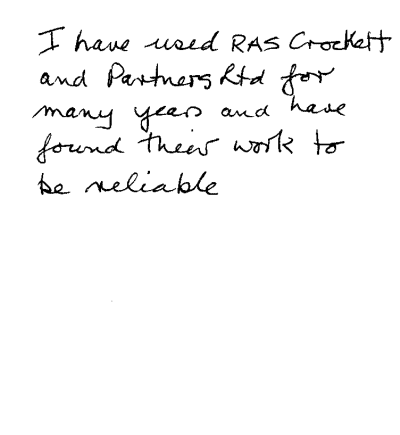 I have used RAS Crockett
and Partners Ltd for
many years and have
found their work to
be reliable